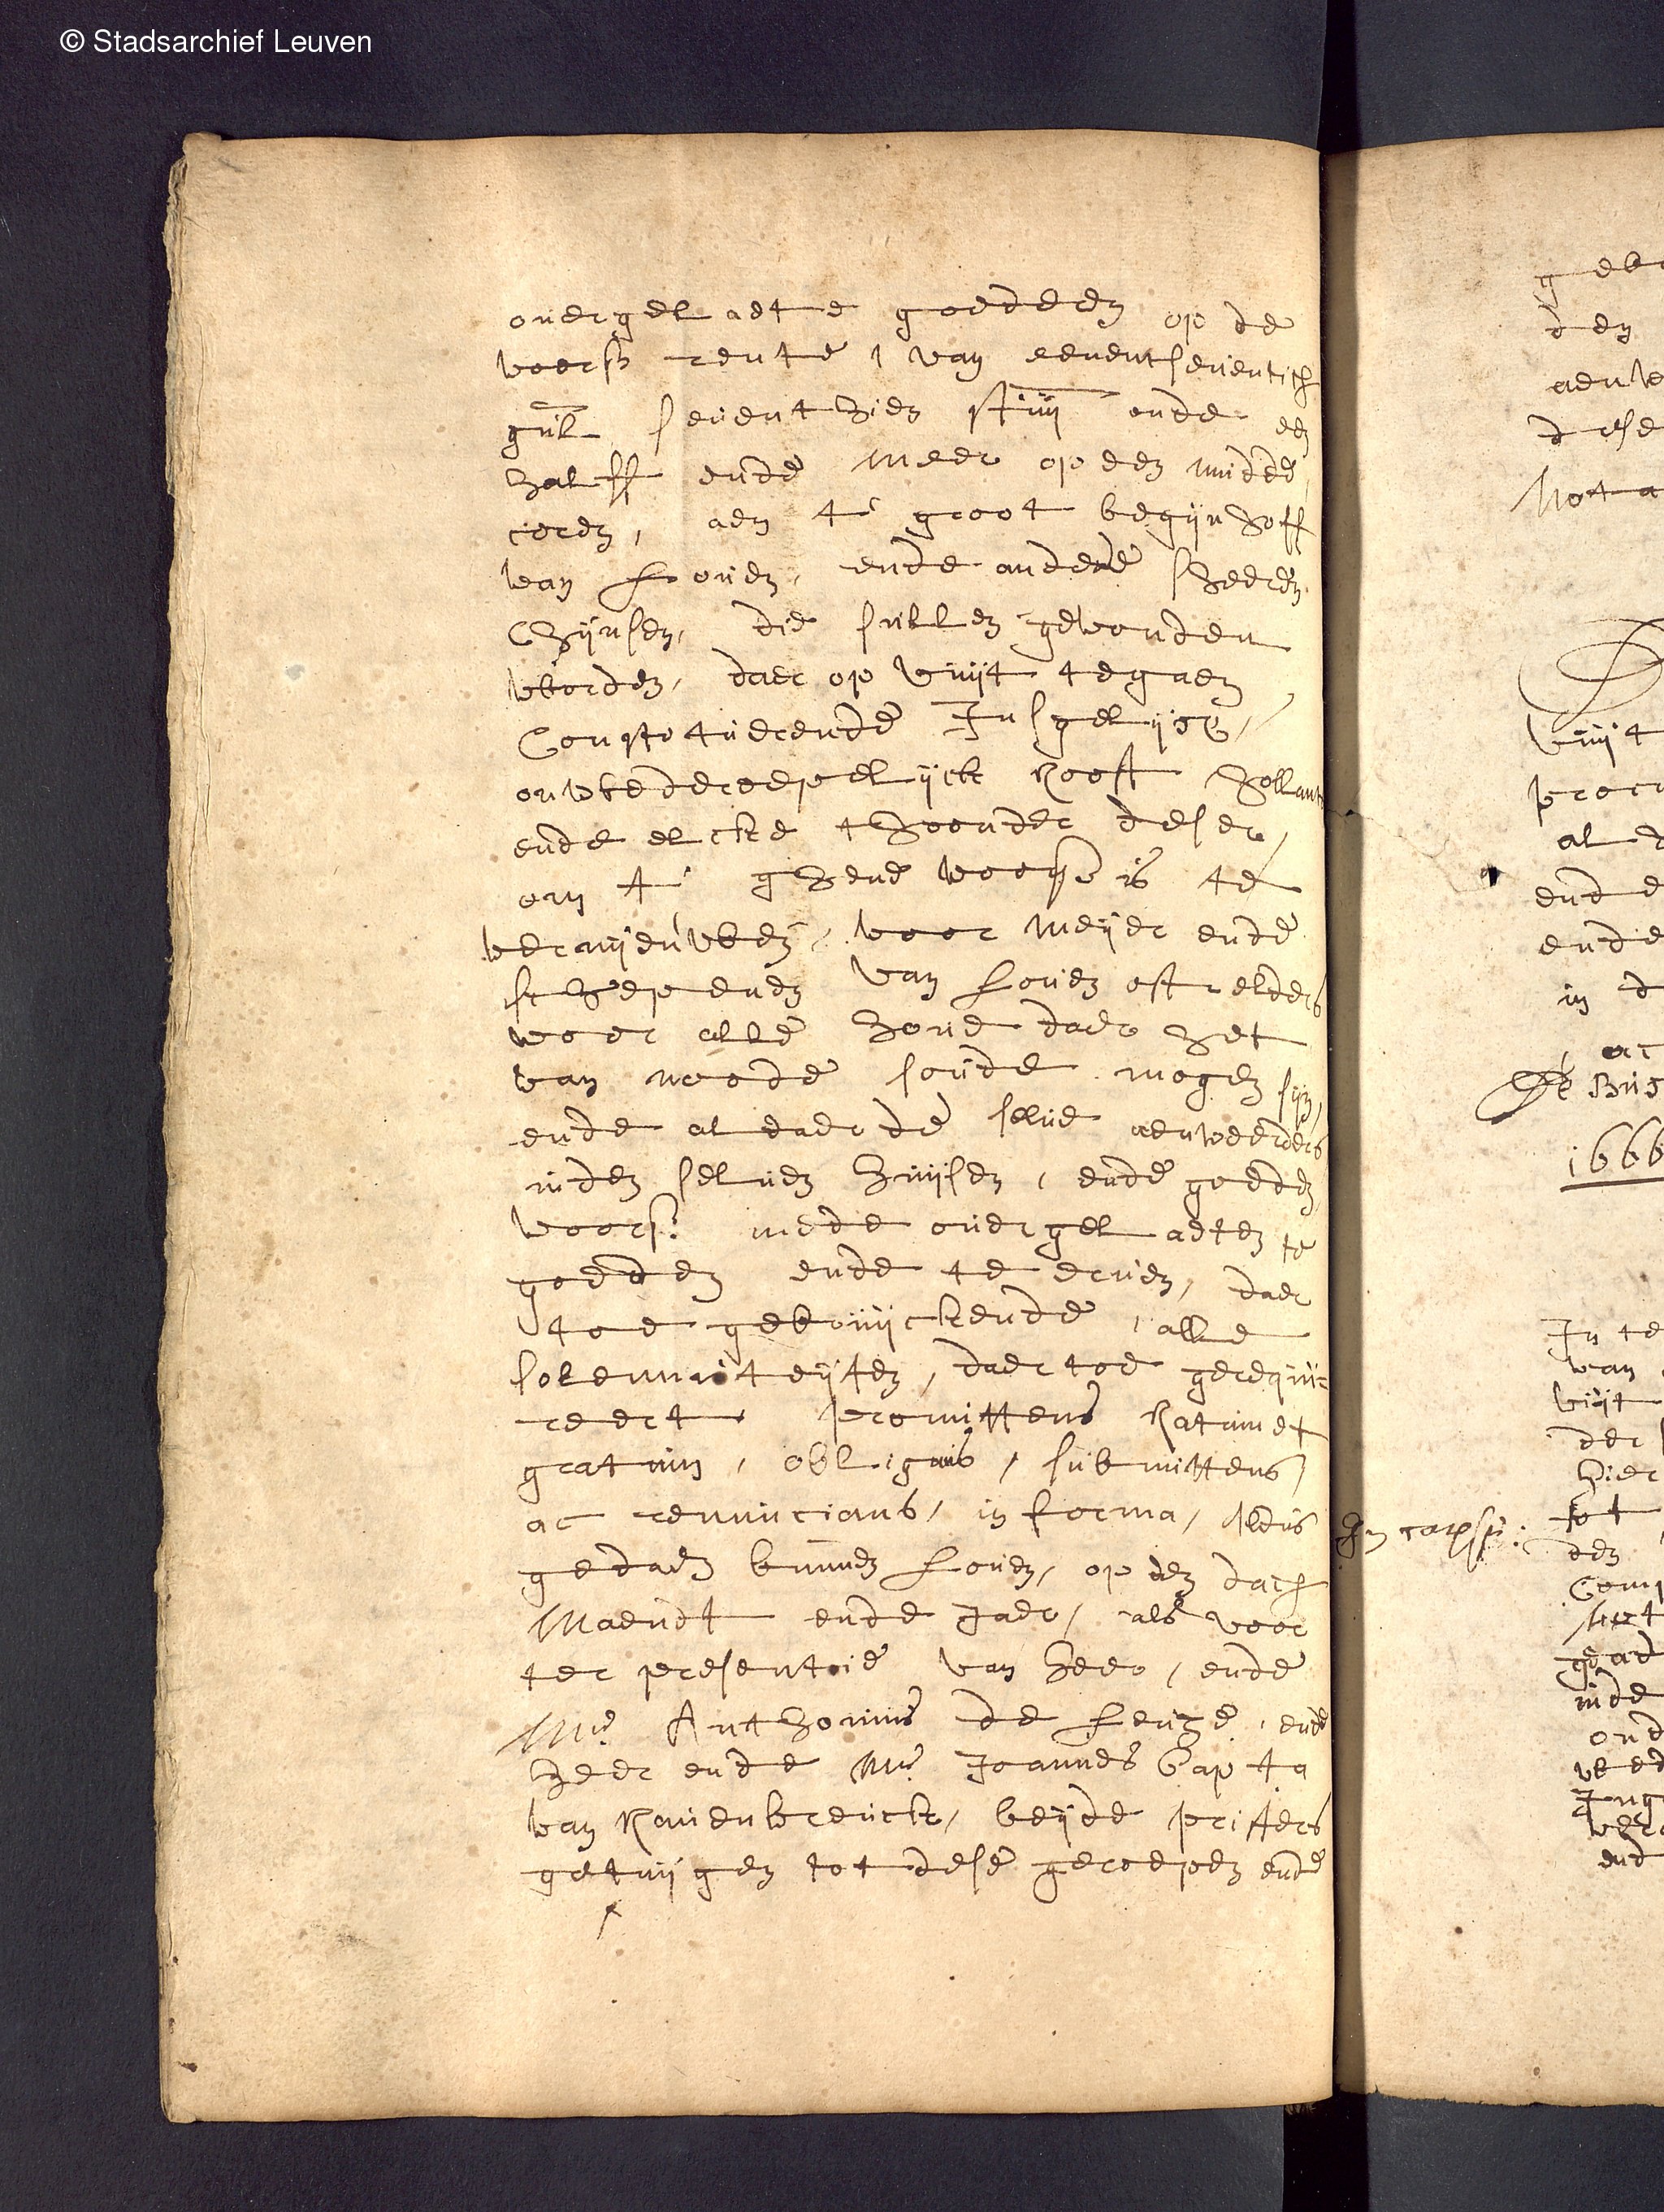 © Stadsarchief Leuven
ouergelaete goederen op de
voors. rente, van eenentseuentich
gul. seuenthien stuv. ende een
halff ende meer op een mindere
ceren, aen t' groot begijnhoff
van Louen, ende andere sheeren
Chijnsen, die sullen gevonden
worden, daer op vuijt te gaen
Constituerende Insgelijcx,
onwederroepelijck Roost Hollants
ende elcke thoonder deser,
om t' ghene voors. is te
vernijeuwen, voor meijer ende
schepenen van Louen oft elders
voor alle houe daer het
van noode soude mogen sijn,
ende aldaer de selue aenweerders
inden seluen huijsen, ende goeden
voors. mede ouergelaeten te
goeden ende te eruen, daer
toe gebruijckende, alle
solemniteijten, daer toe gerequi=
reert promittens Ratum et
gratum, obligans, submittens,
ac renuncians, in forma, Aldus
gedaen binnen Louen, op den dach
Maendt ende Jaer, als voor
ter presentie van heer, ende
Mr. Anthonius de Leuze, ende
heer ende Mr. Joannes Bapta
van Rauenbreuck, beijde pristers
getuijgen tot dese geroepen ende
den
Nota
vuijt
ende
ende
in d
1666
In te
van
vuijt
der
hier
tot
den